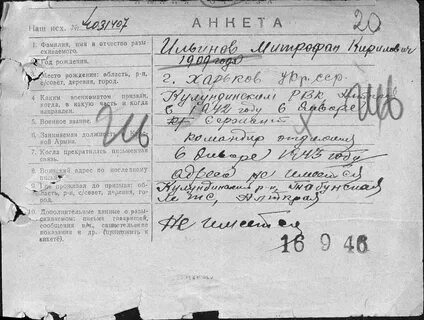 АНКЕТА
20
Наш исх. №
4031407
1. Фамилия, имя и отчество разыскиваемого.
Ильинов Митрофан Кирилович
2. Год рождения.
1909 года
3. Место рождения: область, р-н, с/совет, деревня, город.
г. Харьков Укр. сср.
4. Каким военкоматом призван, когда, в какую часть и когда направлен.
Кулундинским РВК
с 1942 году в январе
5. Воинское звание.
Сержант
6. Занимаемая должность в Красной Армии.
командир отделения
7. Когда прекратилась письменная связь.
в январе 1943 году
8. Воинский адрес по последнему письму.
адреса не имеется
9. Где проживал до призыва: область, р-н, с/совет, деревня, город.
Кулундинский р-н,
Алткрая
10. Дополнительные данные о разыскиваемом: письма товарищей, сообщения в/ч,
показания и др. (приложить к анкете).
Не имеется
16 9 46